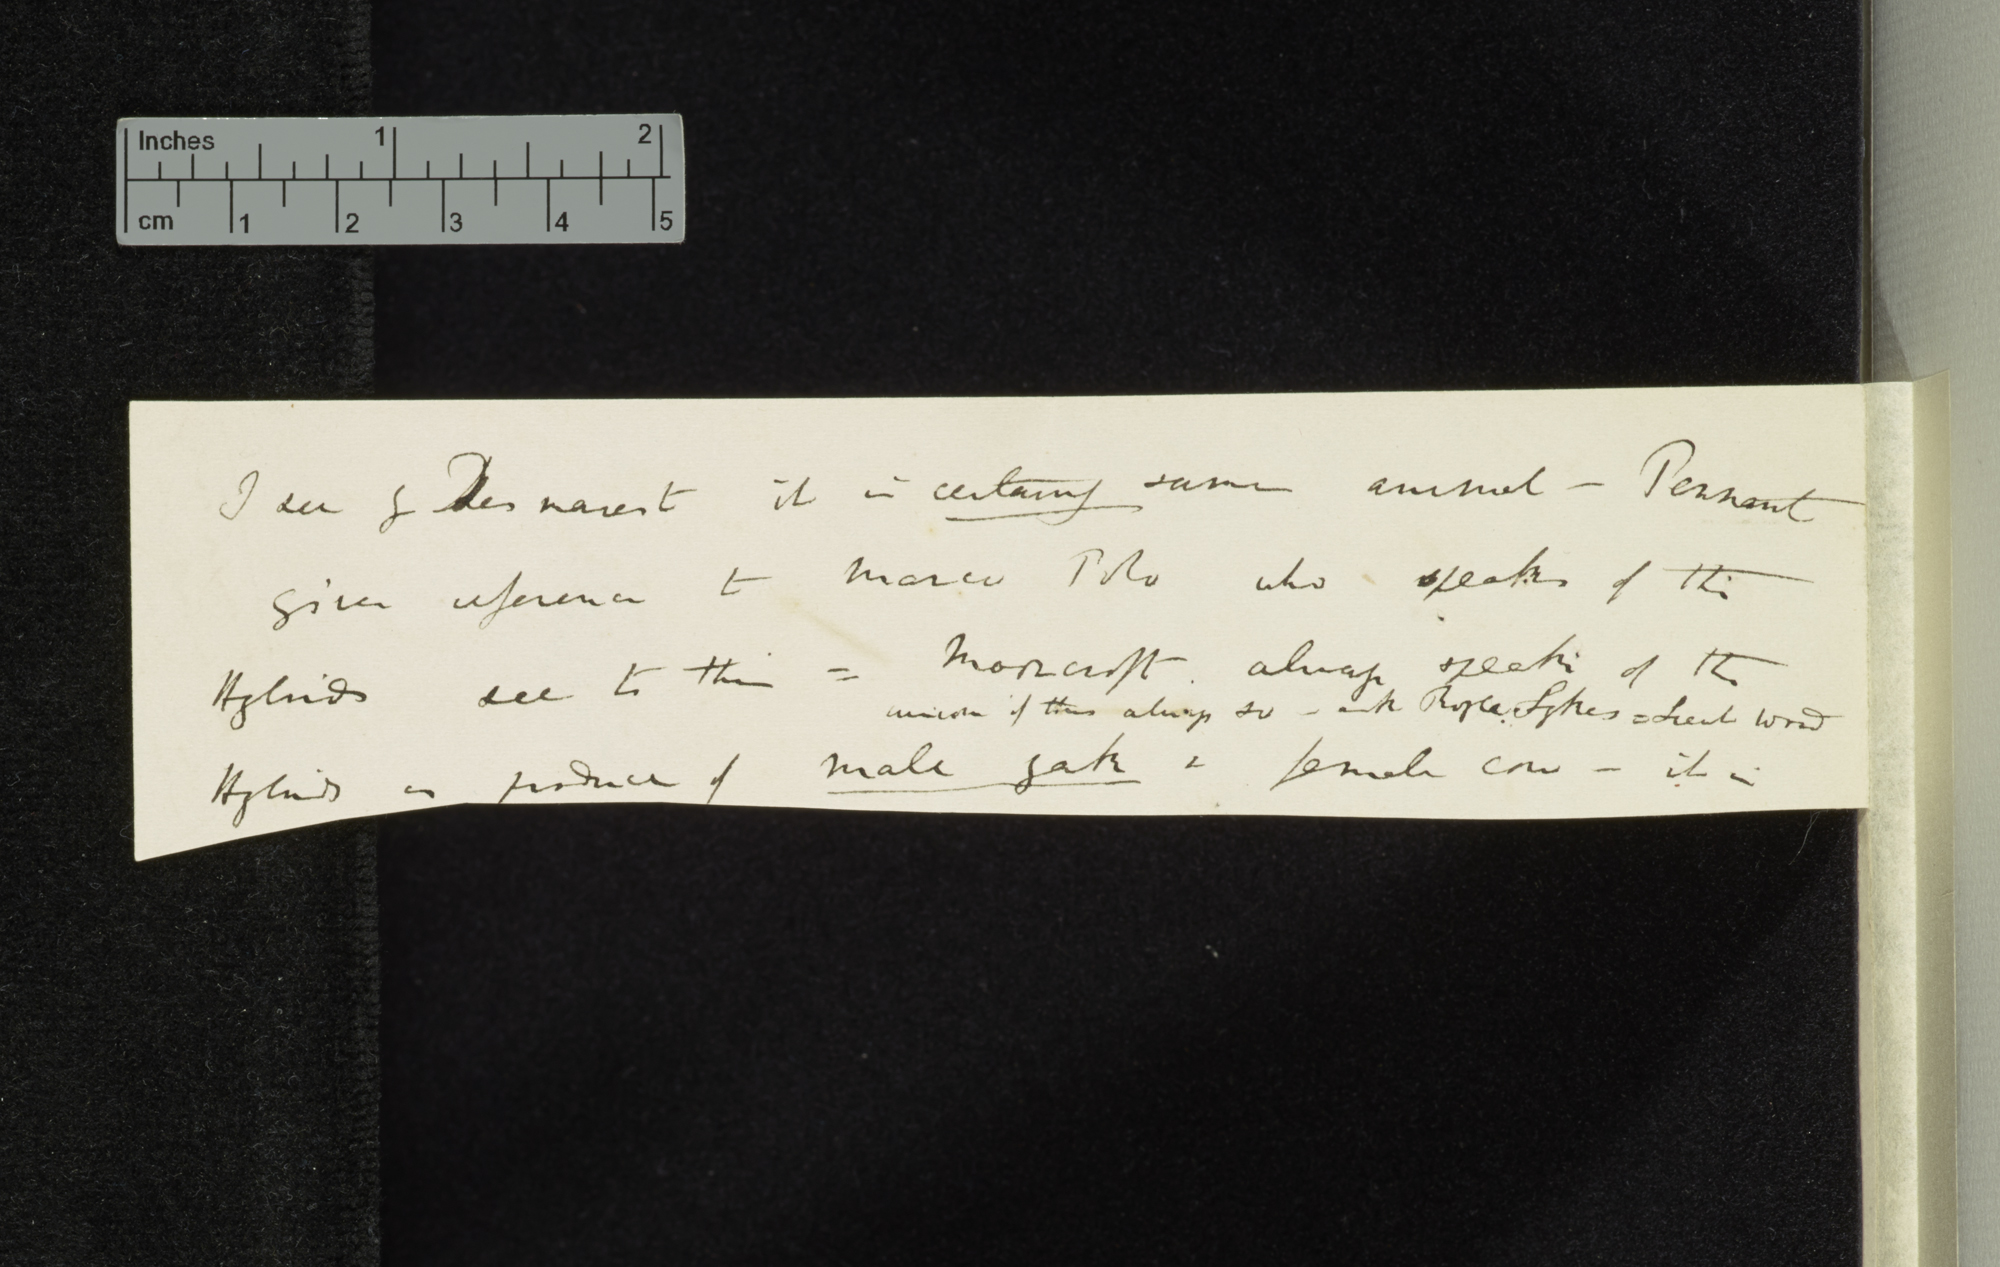 Inches 1 2
cm 1 2 3 4 5
I see Desmarest it is certainly same animal — Pennant
gives reference to Marco Polo who speaks of this
Hybrids see to this = Moorcroft. always speaks of the
of this always so — ask Royle. Sykes = Lieut Wood
Hybrids as produce of male yak & female cow — it is